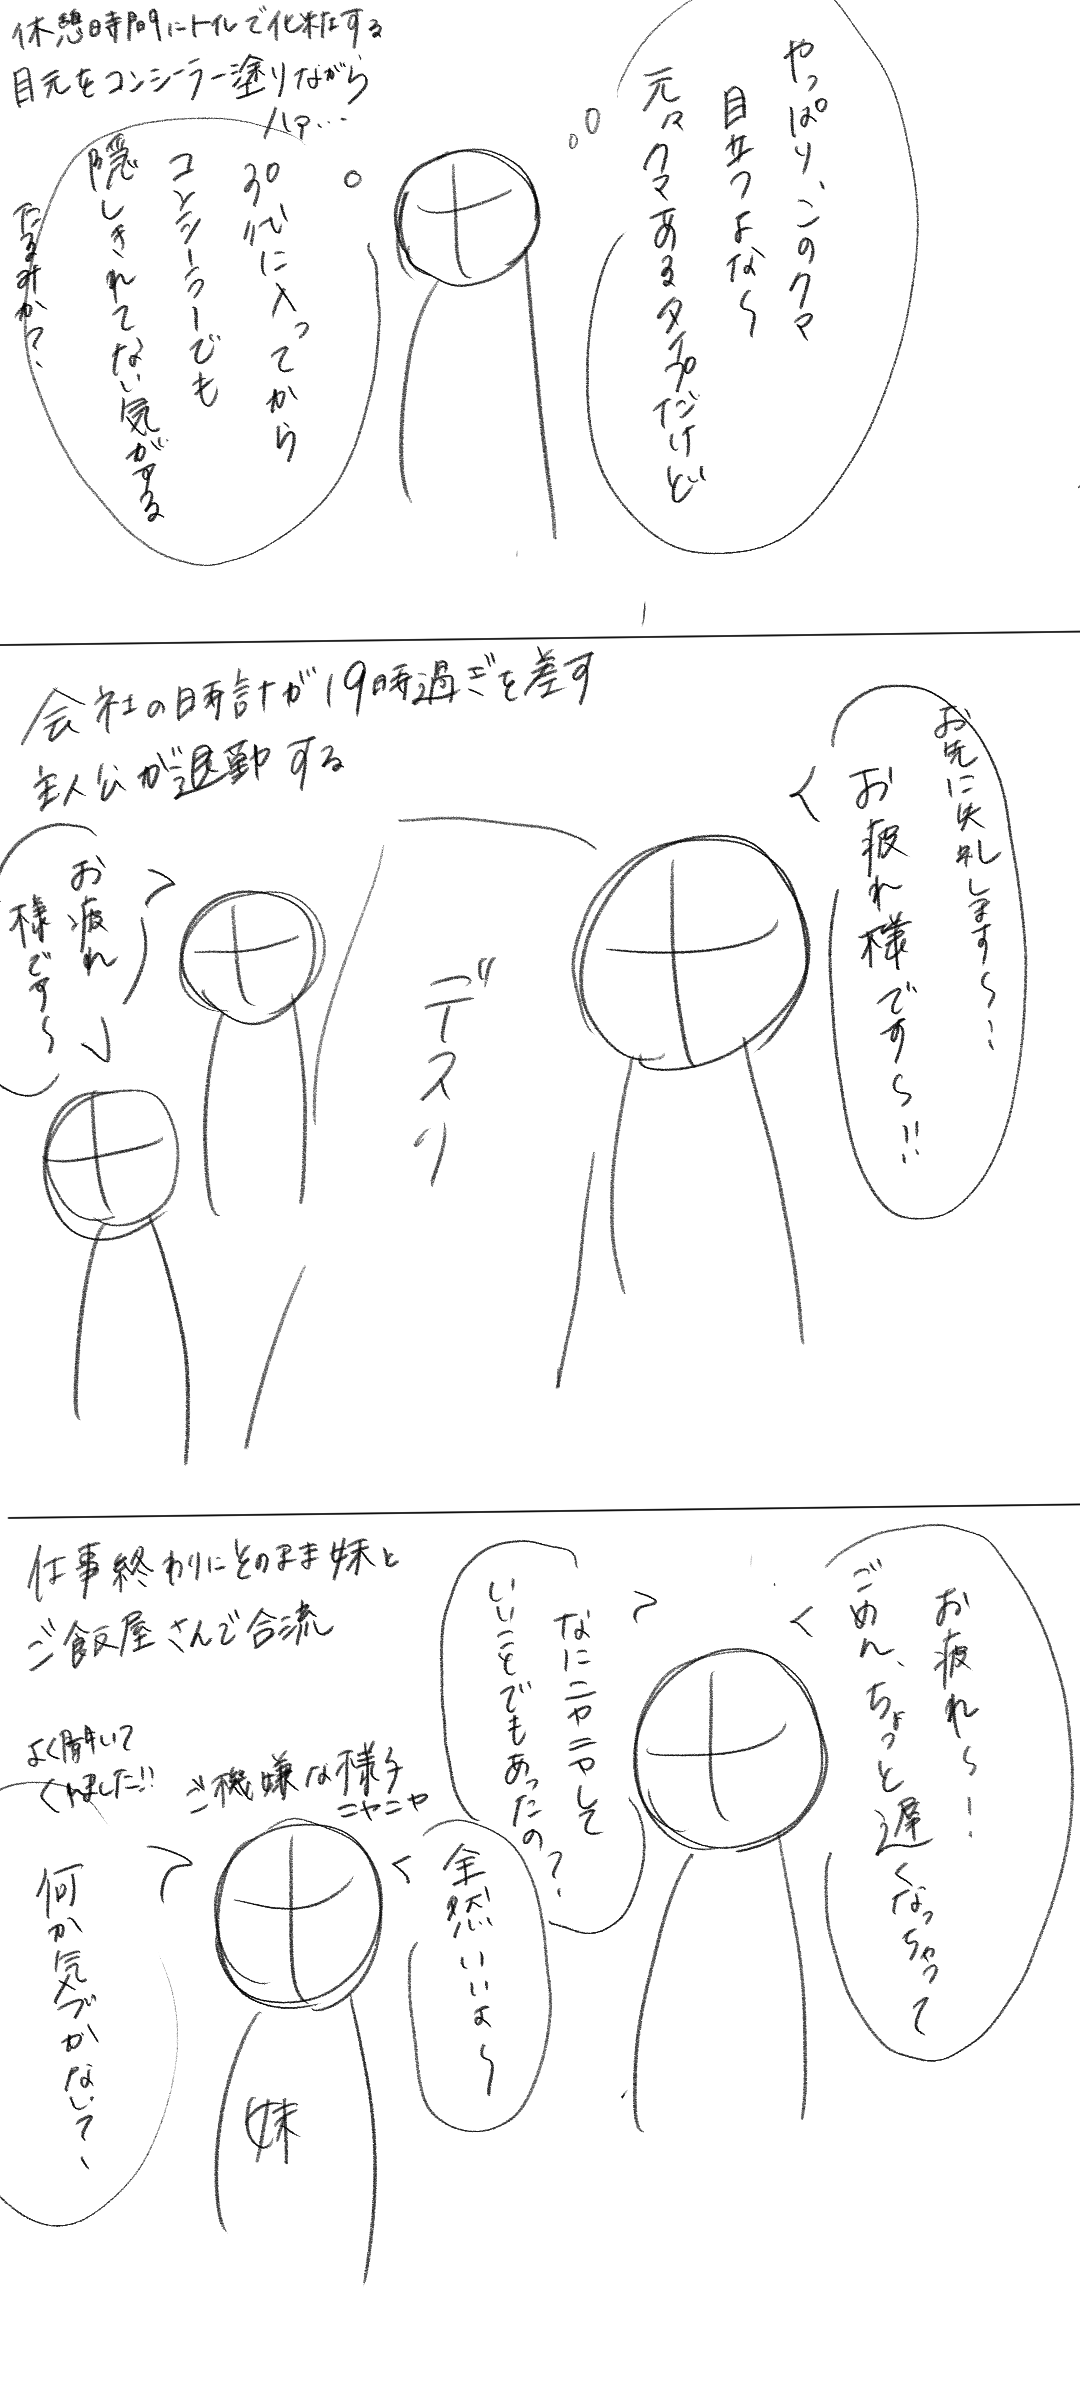 休憩時間にトイレで化粧する
目元をコンシーラー塗りながら
やっぱり、このクマ
目立つよな〜
元々クマあるタイプだけど
ハァ…
30代に入ってから
コンシーラーでも
隠しきれてない気がする
たるみか?
会社の時計が19時過ぎを差す
主人公が退勤する
お先に失礼します〜!
お疲れ様です〜!!
デスク
お疲れ
様です〜
仕事終わりにそのまま妹と
ご飯屋さんで合流
お疲れ〜!
ごめん、ちょっと遅くなっちゃって
なにニヤニヤして
いいことでもあったの?
ご機嫌な様子
ニヤニヤ
全然いいよ〜
よく聞いて
くれました!!
何か気づかない?
妹